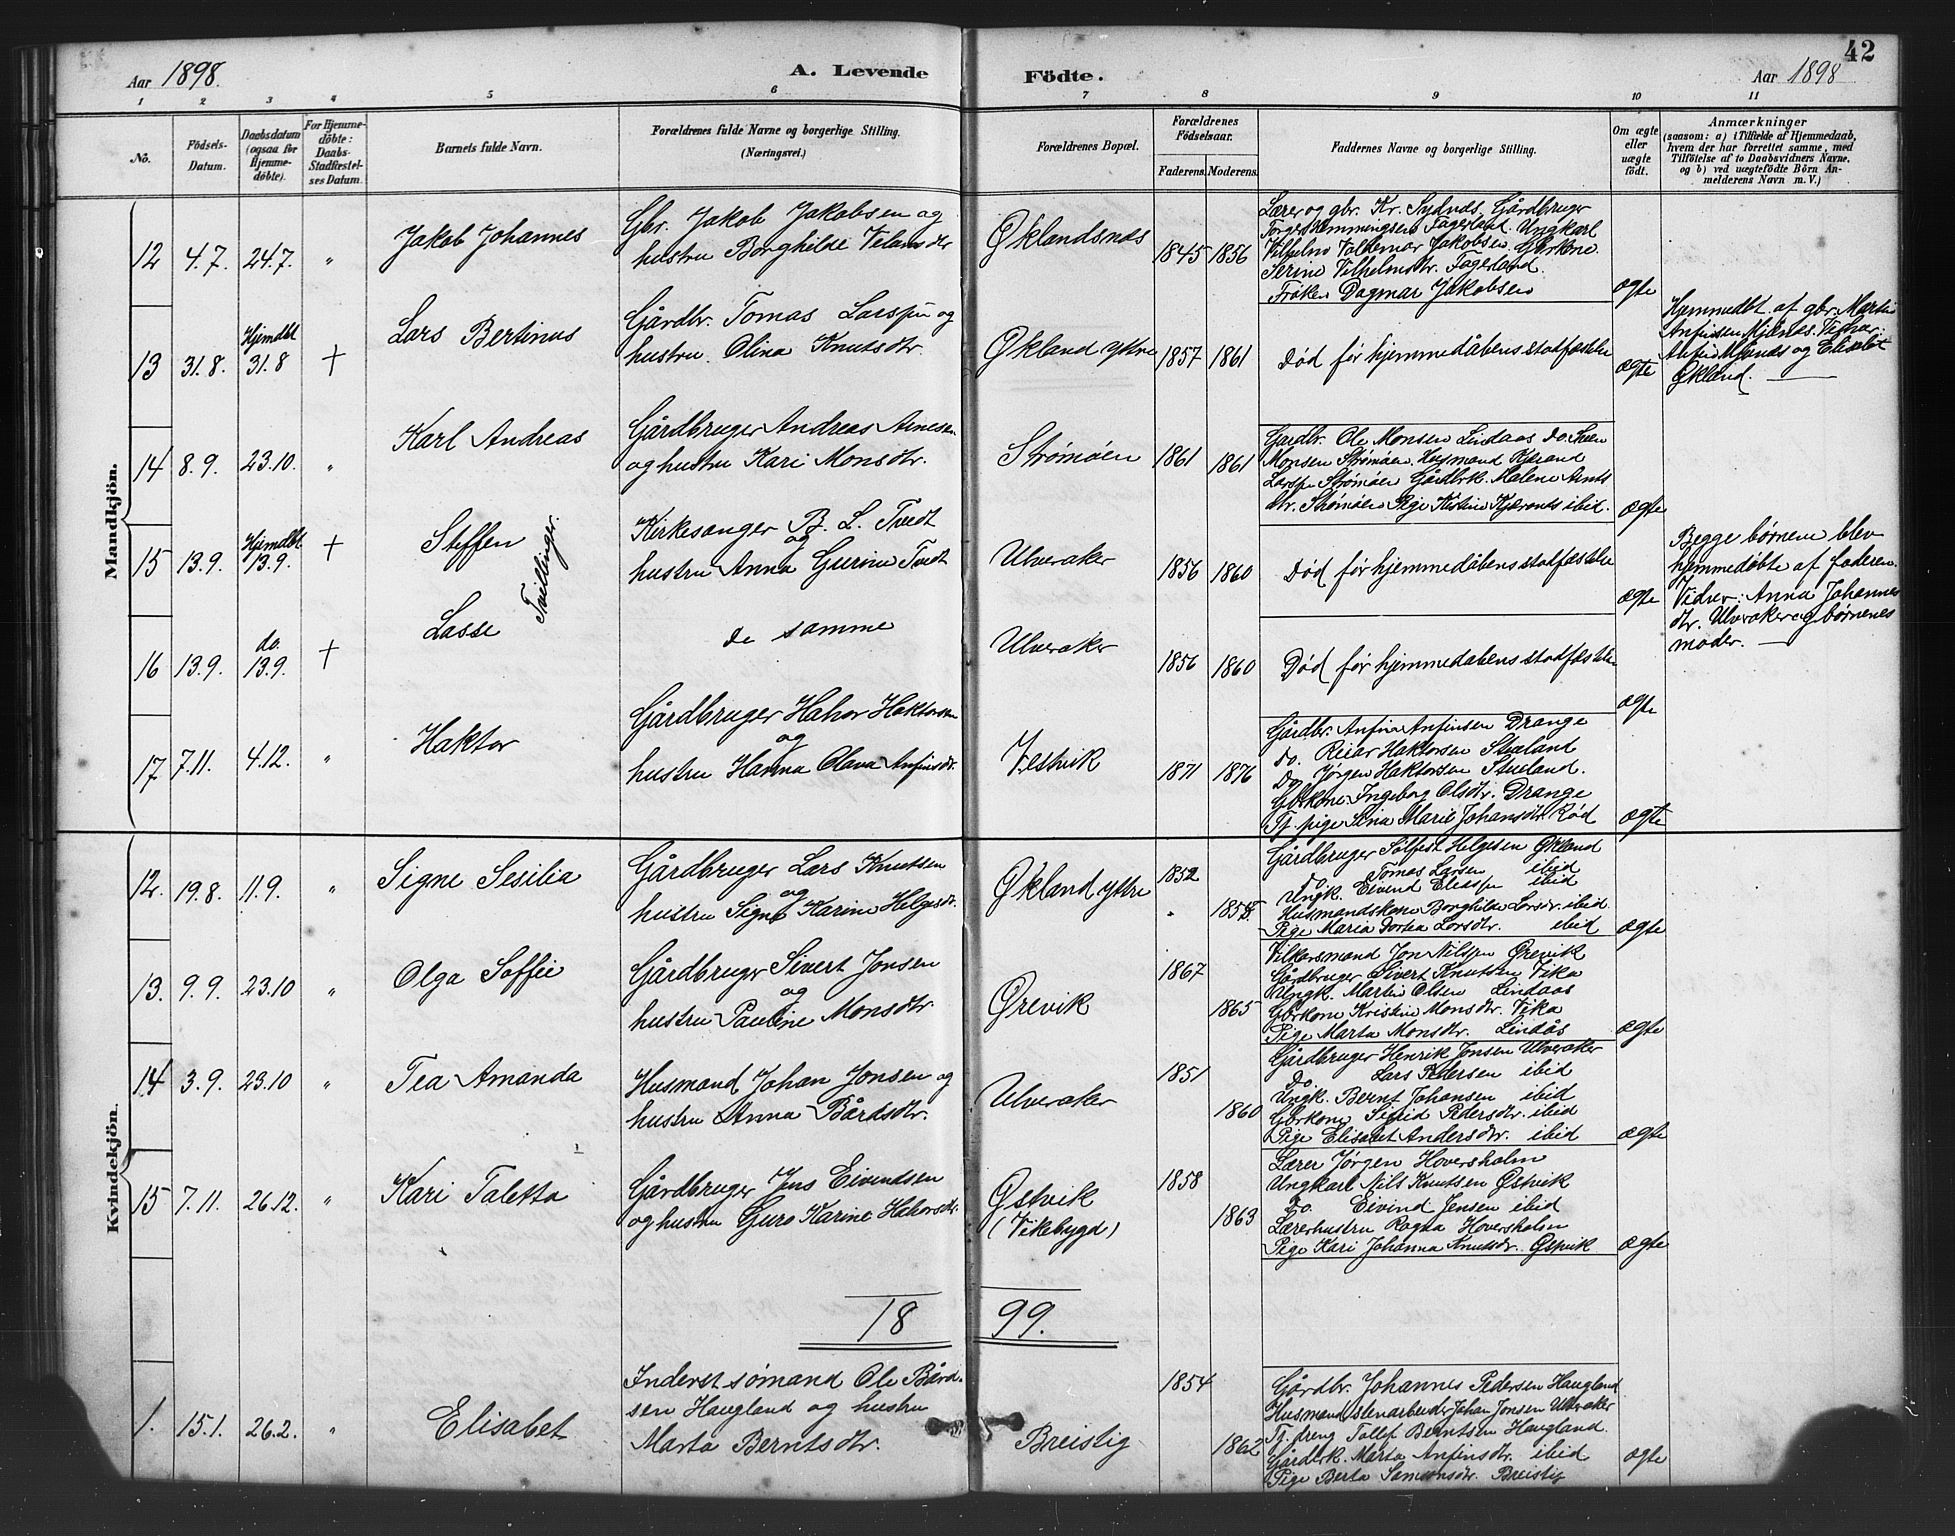 42
Aar 1898.
A. Levende
Födte.
Aar 1898
1 2 3 4 5 6 7 8 9 10 11
No.
Födsels-
Datum.
Daabsdatum
(ogsaa for
Hjemme-
døbte).
For Hjemme-
döbte:
Daabs-
Stadfæstel-
ses Datum.
Barnets fulde Navn.
Forældrenes fulde Navne og borgerlige Stilling.
(Næringsvei.)
Forældrenes Bopæl.
Forældrenes
Födselsaar.
Faderens. Moderens.
Faddernes Navne og borgerlige Stilling.
Om ægte
eller
uægte
født.
Anmærkninger
(saasom: a) i Tilfælde af Hjemmedaab,
hvem der har forrettet samme, med
Tilföielse af to Daabsvidners Navne,
og b) ved uægtefödte Börn An-
melderens Navn m. V.)
Mandkjön.
12 4.7. 24.7. "
Jakob Johannes
Gbr. Jakob Jakobsen og
hustru Borghilde
Øklandsnas
1845 1856
Lærer og gbr. Kr. Sydnes. Gårdbruger
Torger Hemmingsen Fageland. Ungkarl
Vilhelm Valdemar Jakobsen. Gbrkone
Serine Vilhelmsdtr. Fageland.
Frøken Dagmar Jakobsen
ægte
13 31.8. Hjemdbt
31.8 +
Lars Bertinus
Gårdbr. Tomas Larsen og
hustru. Olina Knutsdtr.
Økland ytre
1857 1861
Død før hjemmedåbens stadfæstelse
ægte
Hjemmedbt af gbr. Martin
Anfinsen Mjånes. Vidner:
Anfin Mjånes og Elisabet
Økland.
14 8.9. 23.10. "
Karl Andreas
Gårdbruger Andreas Arnesen
og hustru Kari Monsdtr.
Strømøen
1861 1861
Gardbr. Ole Monsen Lindaas do. Sveen
Monsen Strømøen. Husmand
Larsen Strømøen Gårdbrk. Malene
dtr. Strømøen Pige Kristine ibid.
ægte
15 13.9. Hjemdbt
13.9. +
Steffen
Tvellinger.
Kirkesanger B. L. Tvedt
og
hustru Anna Gurine Tvedt
Ulveraker
1856 1860
Død før hjemmedåbens stadfæstelse
ægte
Begge børnene blev
hjemmedøbte af faderen.
Vidner: Anna Johannes
dtr. Ulveraker og børnenes
moder.
16 13.9. do.
13.9. +
Lasse
de samme
Ulveraker
1856 1860
Død før hjemmedåbens stadfæstelse
ægte
17 7.11. 4.12. "
Haktor
Gårdbruger Hahor Haktorsen
og
hustru Hanna Olava Anfinsdtr.
Vestvik
1871 1876
Gårdbr. Anfin Anfinsen Drange
do. Reiar Haktorsen Stueland
Do Jørgen Haktorsen Stueland.
Gbrkone Ingeborg Olsdtr. Drange
Tj. pige Sina Marie Johansdtr. Rød
ægte
Kvindekjön.
12. 19.8. 11.9. "
Signe Sesilia
Gårdbruger Lars Knutsen
og
hustru Signe Karine Helgesdtr.
Økland ytre
1852 1858.
Gårdbruger Solfest Helgesen Økland
Do Tomas Larsen ibid
Ungk. Eivind Eliassen ibid
Husmandskone Borghilde Larsdtr. ibid.
Pige Maria Dortea Larsdtr. ibid
ægte
13. 9.9. 23.10 "
Olga Soffie
Gårdbruger Sivert Jonsen
og
hustru Pauline Monsdtr.
Ørevik
1867 1865
Vilkorsmand Jon Nilssen Ørevik
Gårdbruger Sivert Knutsen Vika
Ungk. Martin Olsen Lindaas
Gbrkone Kristine Monsdtr. Vika
Pige Marta Monsdtr. Lindås
ægte
14 3.9. 23.10 "
Tea Amanda
Husmand Johan Jonsen og
hustru Anna Bårdsdtr.
Ulveraker
1851 1860
Gårdbruger Henrik Jonsen Ulveraker
Do. Lars Pedersen ibid
Ungk. Bernt Johansen ibid
Gbrkone Sigrid Pedersdtr. ibid
Pige Elisabet Andersdtr. ibid
ægte
15 7.11. 26.12. "
Kari Taletta
Gårdbruger Jens Eivindsen
og hustru Guro Karine Hahorsdtr.
Østvik
(Vikebygd)
1858 1863
Lærer Jørgen Hoversholm
Ungkarl Nils Knutsen Østvik
Do. Eivind Jensen ibid
Lærerhustru Ragna Hoversholm
Pige Kari Johanna Knutsdtr. Østvik
ægte
18 99.
1. 15.1. 26.2. "
Elisabet
Inderst sømand Ole Bård-
sen Haugland og hustru
Marta Berntsdtr.
Breistig
1854 1862
Gårdbr. Johannes Pedersen Haugland
Husmand Stenarbeider Johan Jonsen Ulveraker
Tj. dreng Tollef Berntsen Haugland.
Gårdbrk. Marta Anfinsdtr. ibid
Pige Berta Samsonsdtr. Breistig
ægte